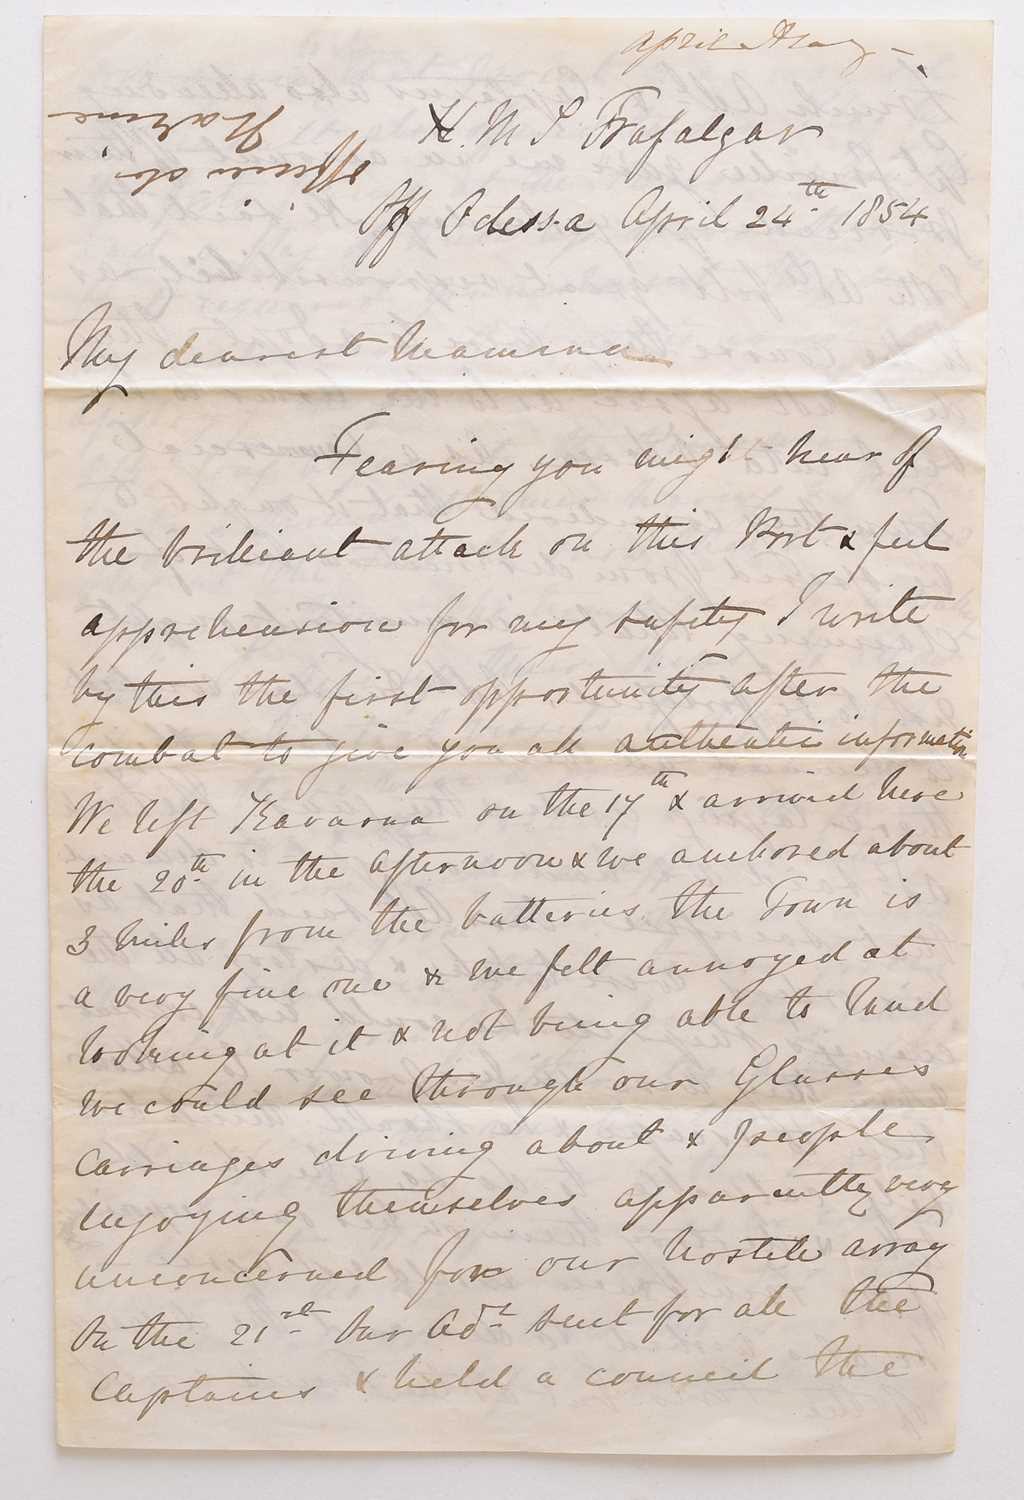 April
H.M.S Trafalgar
Off Odessa April 24th 1854
My dearest Mamma
Fearing you might hear of
the brilliant attack on this Port & feel
apprehension for my safety I write
by this the first opportunity after the
combat to give you all authentic information
We left Kavarna on the 17th & arrived here
the 20th in the afternoon & we anchored about
3 miles from the batteries the Town is
a very fine one & we felt annoyed at
looking at it & not being able to land
we could see through our Glasses
carriages driving about & people
enjoying themselves apparently very
unconcerned for our hostile array
On the 21st Our Adl sent for all the
Captains & held a council the